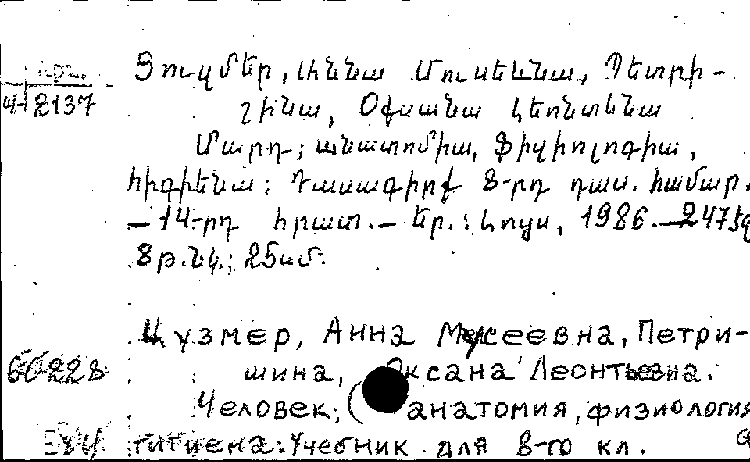 Ցուզմեր, Աննա Մուսեևնա, Պետրի-
4-2137
շինա, Օքսանա Լեոնտևնա
Մարդ; անատոմիա, ֆիզիոլոգիա,
հիգիենա: Դասագիրք 8-րդ դաս. համար.
– 14-րդ հրատ. – Եր.: Լույս, 1986. – 247 էջ
8 թ. նկ.; 25 սմ.
Цузмер, Анна Мусеевна, Петри-
60228
шина, Оксана Леонтьевна.
Человек; (анатомия, физиология
гигиена: Учебник для 8-го кл.